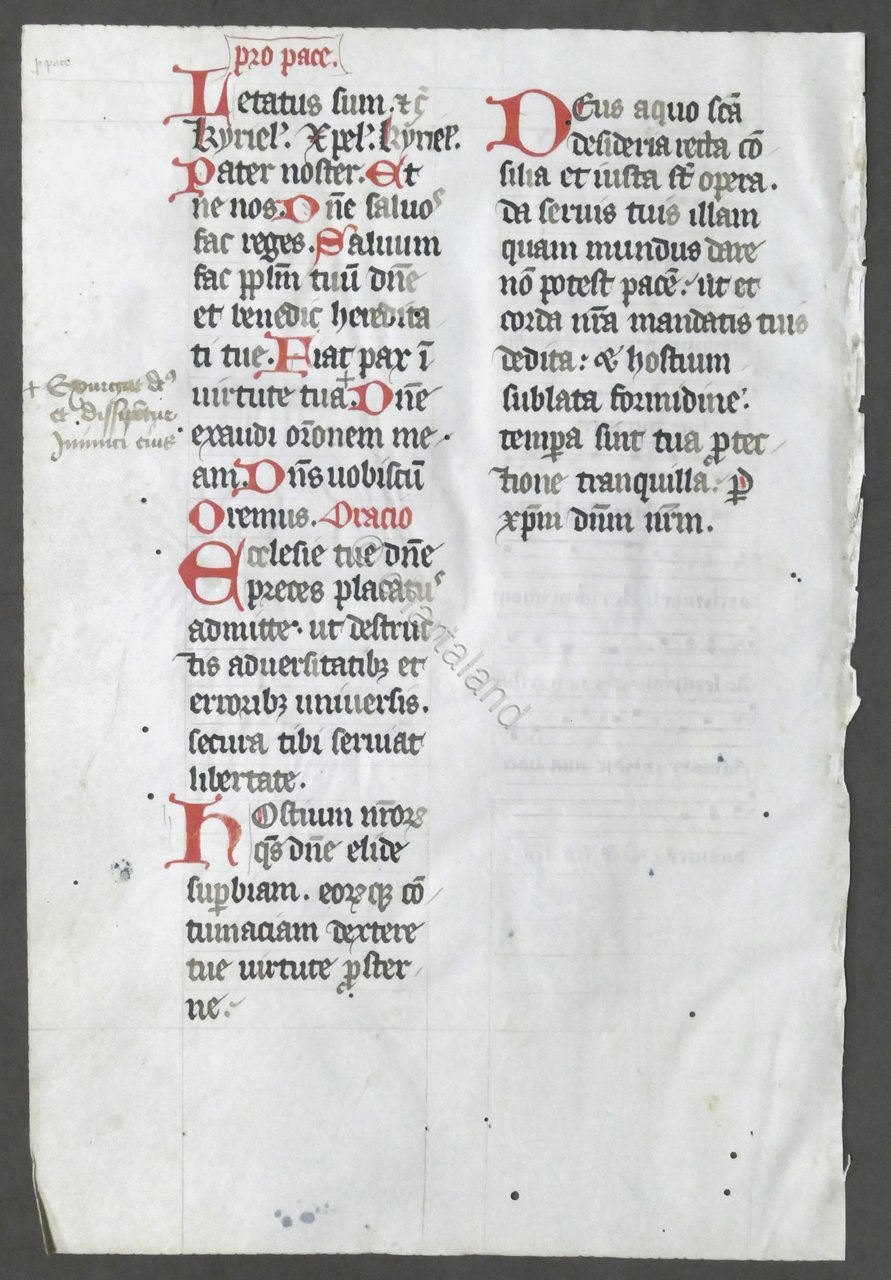 p pace
pro pace.
Letatus sum. ⁊c̄
kyriel'. Xpel'. kyriel'.
Pater noster. Et
ne nos. Dn̄e saluoˢ
fac reges. Saluum
fac pplm̄ tuū dn̄e
et benedic heredita
ti tue. Fiat pax ī
uirtute tua. + Dn̄e
exaudi or̄onem me
am. Dn̄s uobiscū
Oremus. Oracio
Ecclesie tue dn̄e
preces placatuˢ
admitte. ut destruc
tis aduersitatibꝫ et
erroribꝫ uniuersis.
secura tibi seruiat
libertate.
hOstium nr̄oꝝ
q̄s dn̄e elide
suꝑbiam. eoꝝqꝫ cō
tumaciam dextere
tue uirtute ꝓster
ne.
+ Exurgat deˢ
et dissipētur
Inimici eius
DEus a quo sc̄a
desideria recta cō
silia et iusta st̄ opera.
da seruis tuis illam
quam mundus dare
nō potest pacē. ut et
corda nr̄a mandatis tuis
dedita: & hostium
sublata formidine.
temꝑa sint tua ꝓtec
tione tranquilla. ꝑ
xp̄m dn̄m nr̄m.
© cantaland